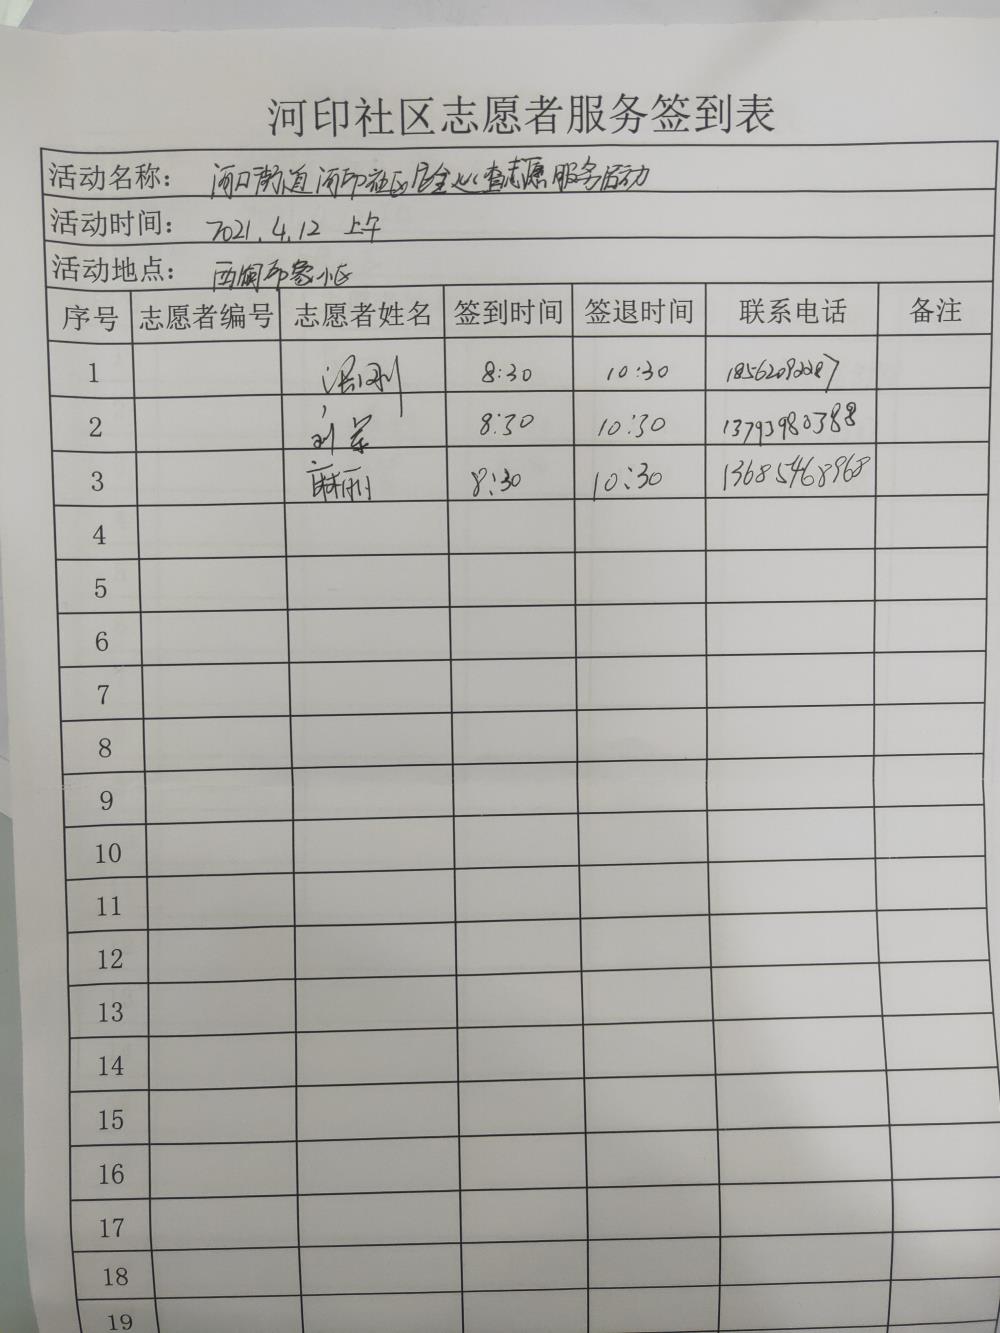 河印社区志愿者服务签到表
活动名称： 河口街道河印社区安全心查志愿服务活动
活动时间： 2021.4.12 上午
活动地点： 西湖印象小区
序号 志愿者编号 志愿者姓名 签到时间 签退时间 联系电话 备注
1 8:30 10:30
2 刘 8:30 10:30 13793980388
3 麻丽 8:30 10:30 13685468968
4
5
6
7
8
9
10
11
12
13
14
15
16
17
18
19